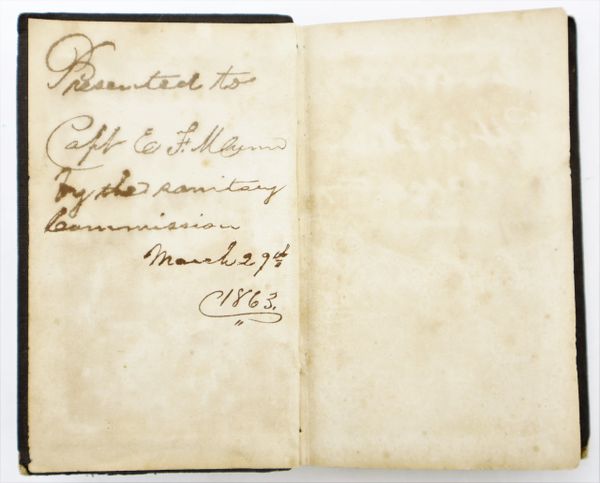 Presented to
Capt E F Munn
by the sanitary
Commission
March 29th
1863.